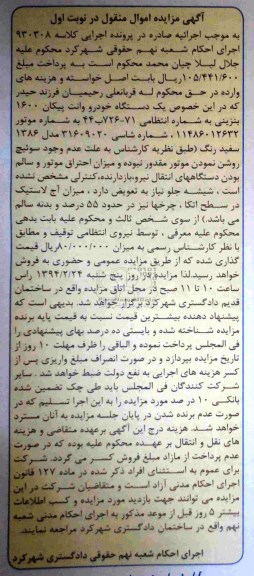 آگهی مزایده اموال منقول در نوبت اول
به موجب اجرائیه صادره در پرونده اجرایی کلاسه ۹۳۰۳۰۸
اجرای احکام شعبه نهم حقوقی شهرکرد محکوم علیه
جلال لیلا چیان محمد محکوم است به پرداخت مبلغ
۱۰۵/۴۴۱/۶۰۰ریال بابت اصل خواسته و هزینه های
وارده در حق محکوم له قربانعلی رحیمیان فرزند حیدر
که در این خصوص یک دستگاه خودرو وانت پیکان ۱۶۰۰
بنزینی به شماره انتظامی ۷۱-۷۲۶ب۴۴ به شماره موتور
۱۱۴۸۶۰۱۲۶۳۲ ، شماره شاسی ۳۱۶۰۹۰۲۰ مدل ۱۳۸۶
سفید رنگ (طبق نظریه کارشناس به علت عدم وجود سوئیچ
روشن نمودن موتور مقدور نبوده و میزان احتراق موتور و سالم
بودن دستگاههای انتقال نیرو،بازدارنده،کنترلی مشخص نشده
است ، شیشه جلو نیاز به تعویض دارد ، میزان آج لاستیک
در سطح اتکا ، چرخها نیز در حدود ۵۵ درصد و بدنه سالم
می باشد.) از سوی شخص ثالث و محکوم علیه بابت بدهی
محکوم علیه معرفی ، توسط نیروی انتظامی توقیف و مطابق
با نظر کارشناس رسمی به میزان ۸۰/۰۰۰/۰۰۰ریال قیمت
گذاری شده که از طریق مزایده عمومی و حضوری به فروش
خواهد رسید.لذا مزایده در روز پنج شنبه ۱۳۹۴/۲/۲۴ راس
ساعت ۱۰ تا ۱۱ صبح در محل اتاق مزایده واقع در ساختمان
قدیم دادگستری شهرکرد برگزار خواهد شد. بدیهی است که
پیشنهاد دهنده بیشترین قیمت نسبت به قیمت پایه برنده
مزایده شناخته شده و بایستی ده درصد بهای پیشنهادی را
فی المجلس پرداخت نموده و الباقی را ظرف مهلت ۱۰ روز از
تاریخ مزایده بپردازد و در صورت انصراف مبلغ واریزی پس از
کسر هزینه های اجرایی به نفع دولت ضبط خواهد شد . سایر
شرکت کنندگان فی المجلس باید طی چک تضمین شده
بانکی ۱۰ در صد مورد مزایده را به این اجرا تسلیم که در
صورت عدم برنده شدن در پایان جلسه مزایده به آنان مسترد
خواهد شد. هزینه درج این آگهی برعهده متقاضی و هزینه
های نقل و انتقال بر عهده محکوم علیه بوده که در صورت
عدم پرداخت از مازاد مبلغ فروش کسر می گردد. شرکت
برای عموم به استثنای افراد ذکر شده در ماده ۱۲۷ قانون
اجرای احکام مدنی آزاد است و متقاضیان شرکت در این
مزایده می توانند جهت بازدید مورد مزایده و کسب اطلاعات
بیشتر ۵ روز قبل از موعد مذکور به اجرای احکام مدنی شعبه
نهم واقع در ساختمان دادگستری شهرکرد مراجعه نمایند.
اجرای احکام شعبه نهم حقوقی دادگستری شهرکرد